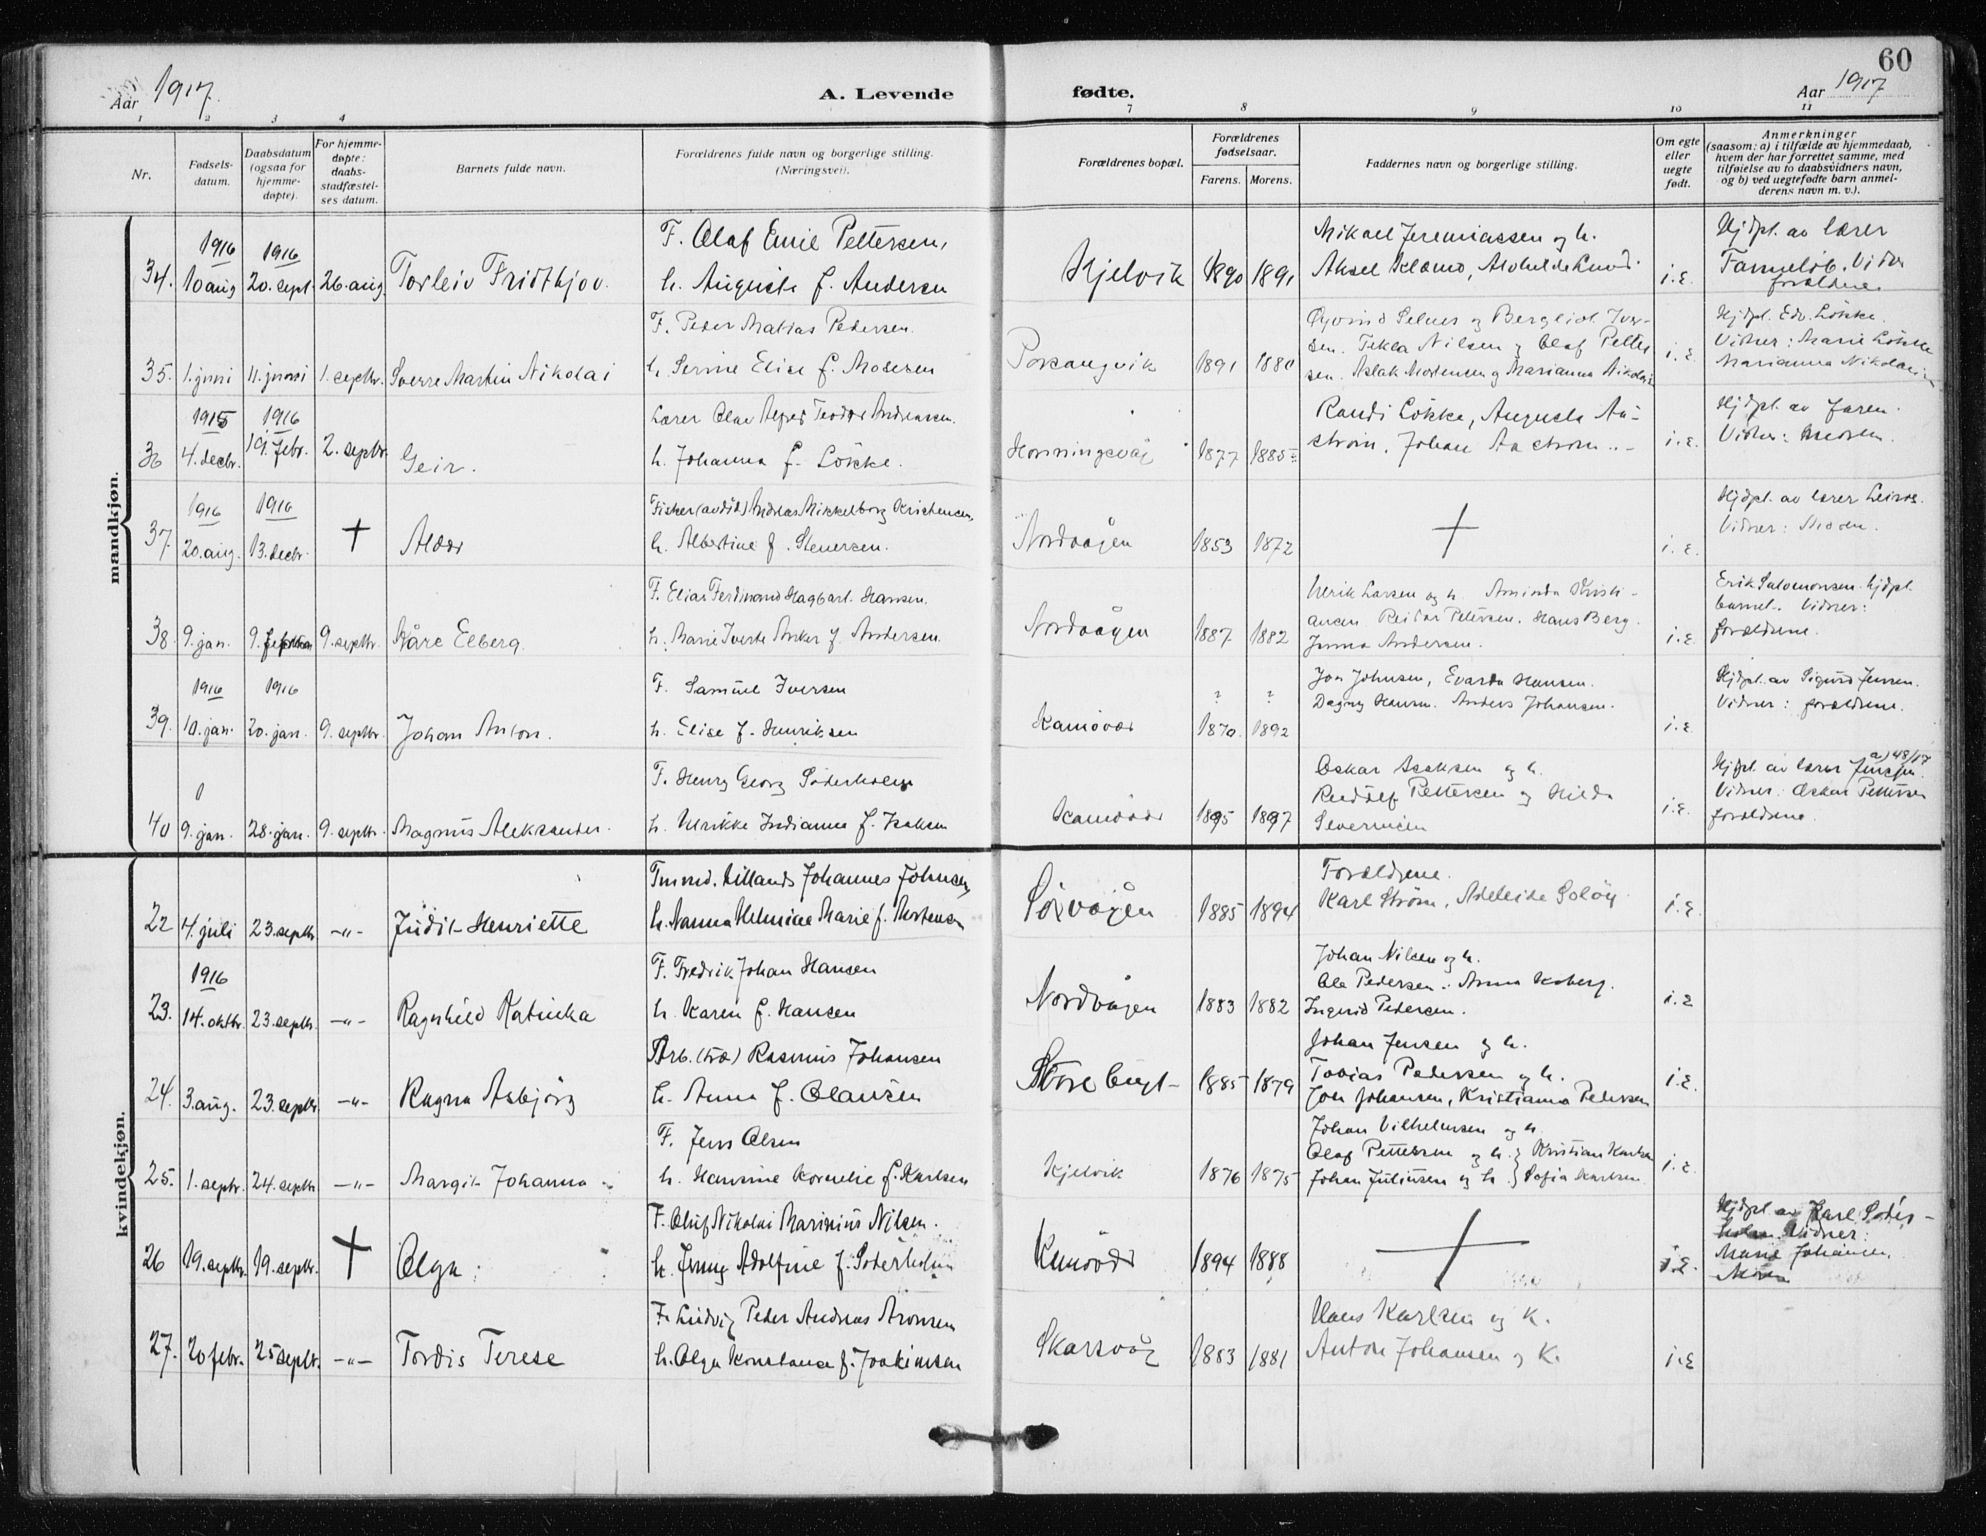 60
Aar 1917.
A. Levende
fødte.
Aar 1917
1 2 3 4 7 8 9 10 11
Nr.
Fødsels-
datum.
Daabsdatum
(ogsaa for
hjemme-
døpte).
For hjemme-
døpte:
daabs-
stadfæstel-
ses datum.
Barnets fulde navn.
Forældrenes fulde navn og borgerlige stilling.
(Næringsvei).
Forældrenes bopæl.
Forældrenes
fødselsaar.
Farens. Morens.
Faddernes navn og borgerlige stilling.
Om egte
eller
uegte
født.
Anmerkninger
(saasom: a) i tilfælde av hjemmedaab,
hvem der har forrettet samme, med
tilføielse av to daabsvidners navn,
og b) ved uegtefødte barn anmel-
derens navn m. v.).
mandkjøn.
34. 1916 10 aug 1916 20. sept. 26. aug. Torleiv Fridthjov.
F. Olaf Emil Pettersen,
h. Augusta f. Andersen
Kjelvik 1890 1891
Mikael Jeremiassen og h.
Aksel Klæmo,
i.E.
Hjdpt. av lærer
Vidner
forældrene
35. 1. juni 11. juni 1. septbr. Sverre Martin Nikolai
F. Peder Matias Pedersen.
h. Serine Elise f. Modersen
Porsangvik 1891 1880
Øyvind Selnes og Bergliot Iver-
sen. Tekla Nilsen og Olaf Petter
sen. Aslak Mortensen og Marianna Nikolai
i.E.
Hjdpt. Edv. Løkke.
Vidner: Marie Løkke
Marianna Nikolai
36 1915 4. decbr. 1916 19. febr. 2. septbr. Geir.
Lærer Olav Alfred Teodor Andreassen.
h. Johanna f. Løkke.
Honningsvåg 1877 1885
Randi Løkke, Augusta Aa-
strøm, Johan Aastrøm
i.E.
Hjdpt. av faren.
Vidner: Moren.
37. 1916 20. aug. 1916 13. decbr. † Aldor
Fisker (avdød) Andreas Mikkelborg Kristensen,
h. Albertine f. Stenersen.
Nordvågen 1853 1872
i.E.
Hjdpt. av lærer
Vidner: Moren.
38. 9. jan. 9. 9. septbr. Kåre Elberg
F. Elias Ferdinand Hagbart Hansen.
h. Marie Iverte Anker f. Andersen.
Nordvågen 1887 1882
Ulrik Larsen og h. Aminda Kristi-
ansen Reidar Petersen. Hans Berg.
Andersen.
i.E.
Erik Salomonsen hjdpt.
barnet. Vidner:
forældrene.
39. 1916 10. jan. 1916 20. jan. 9. septbr. Johan Anton.
F. Samuel Iversen
h. Elise f. Henriksen
Kamøvær ? 1870 ? 1892
Jon Johnsen, Evarda Hansen.
Dagny Hansen. Anders Johansen.
i.E.
Hjdpt. av Sigurd Jensen.
Vidner: forældrene.
40 9. jan. 28. jan. 9. septbr. Magnus Aleksander.
F. Henry Georg Søderholm
h. Ulrikke Indianna f. Isaksen
Kamøvær 1895 1897
Oskar Isaksen og h.
Rudolf Pettersen og Hilda
i.E.
a) 48/17
Hjdpt. av lærer Jensen.
Vidner: Oskar Pettersen
forældrene.
kvindekjøn.
22 4. juli 23. septbr. -„- Judit Henriette
Johannes Johnsen
h. Nanna Helmine Marie f. Mortensen
Sørvågen 1885 1894
Forældrene.
Karl Strøm, Adeleide Soløy
i.E.
23. 1916 14. oktbr. 23. septbr. -„- Ragnhild Katinka
F. Fredrik Johan Hansen
h. Karen f. Hansen
Nordvågen 1883 1882
Johan Nilsen og h.
Ole Pedersen. Anna
Ingrid Pedersen.
i.E
24. 3. aug. 23. septbr. -„- Ragna Asbjørg
Arb. (træ) Rasmus Johansen
h. Anna f. Clausen
Store bugt 1885 1879
Johan Jensen og h.
Tobias Pedersen og h.
Jon Johansen, Kristianna Petersen
i.E.
25. 1. septbr. 24. septbr. -„- Margit Johanna
F. Jens Olsen
h. Hansine Kornelie f. Karlsen
Kjelvik 1876 1875
Johan Vilhelmsen og h.
Olaf Pettersen og h. } Kristian Karlsen
Johan Juliussen og h. } Sofia Karlsen
i.E.
26 19. septbr. 19. septbr. † Olga
F. Oluf Nikolai Marinius Nilsen.
h. Jenny Adolfine f. Søderholm
Kamøvær 1894 1888
i.E.
Hjdpt. av Karl Søder-
holm. Vidner:
Marie Johansen,
Moren
27. 20 febr. 25 septbr. -„- Tordis Terese
F. Ludvig Peder Andreas Aronsen
h. Olga Konstanse f. Joakimsen
Skarsvåg 1883 1881
Hans Karlsen og K.
Anton Johansen og K.
i.E